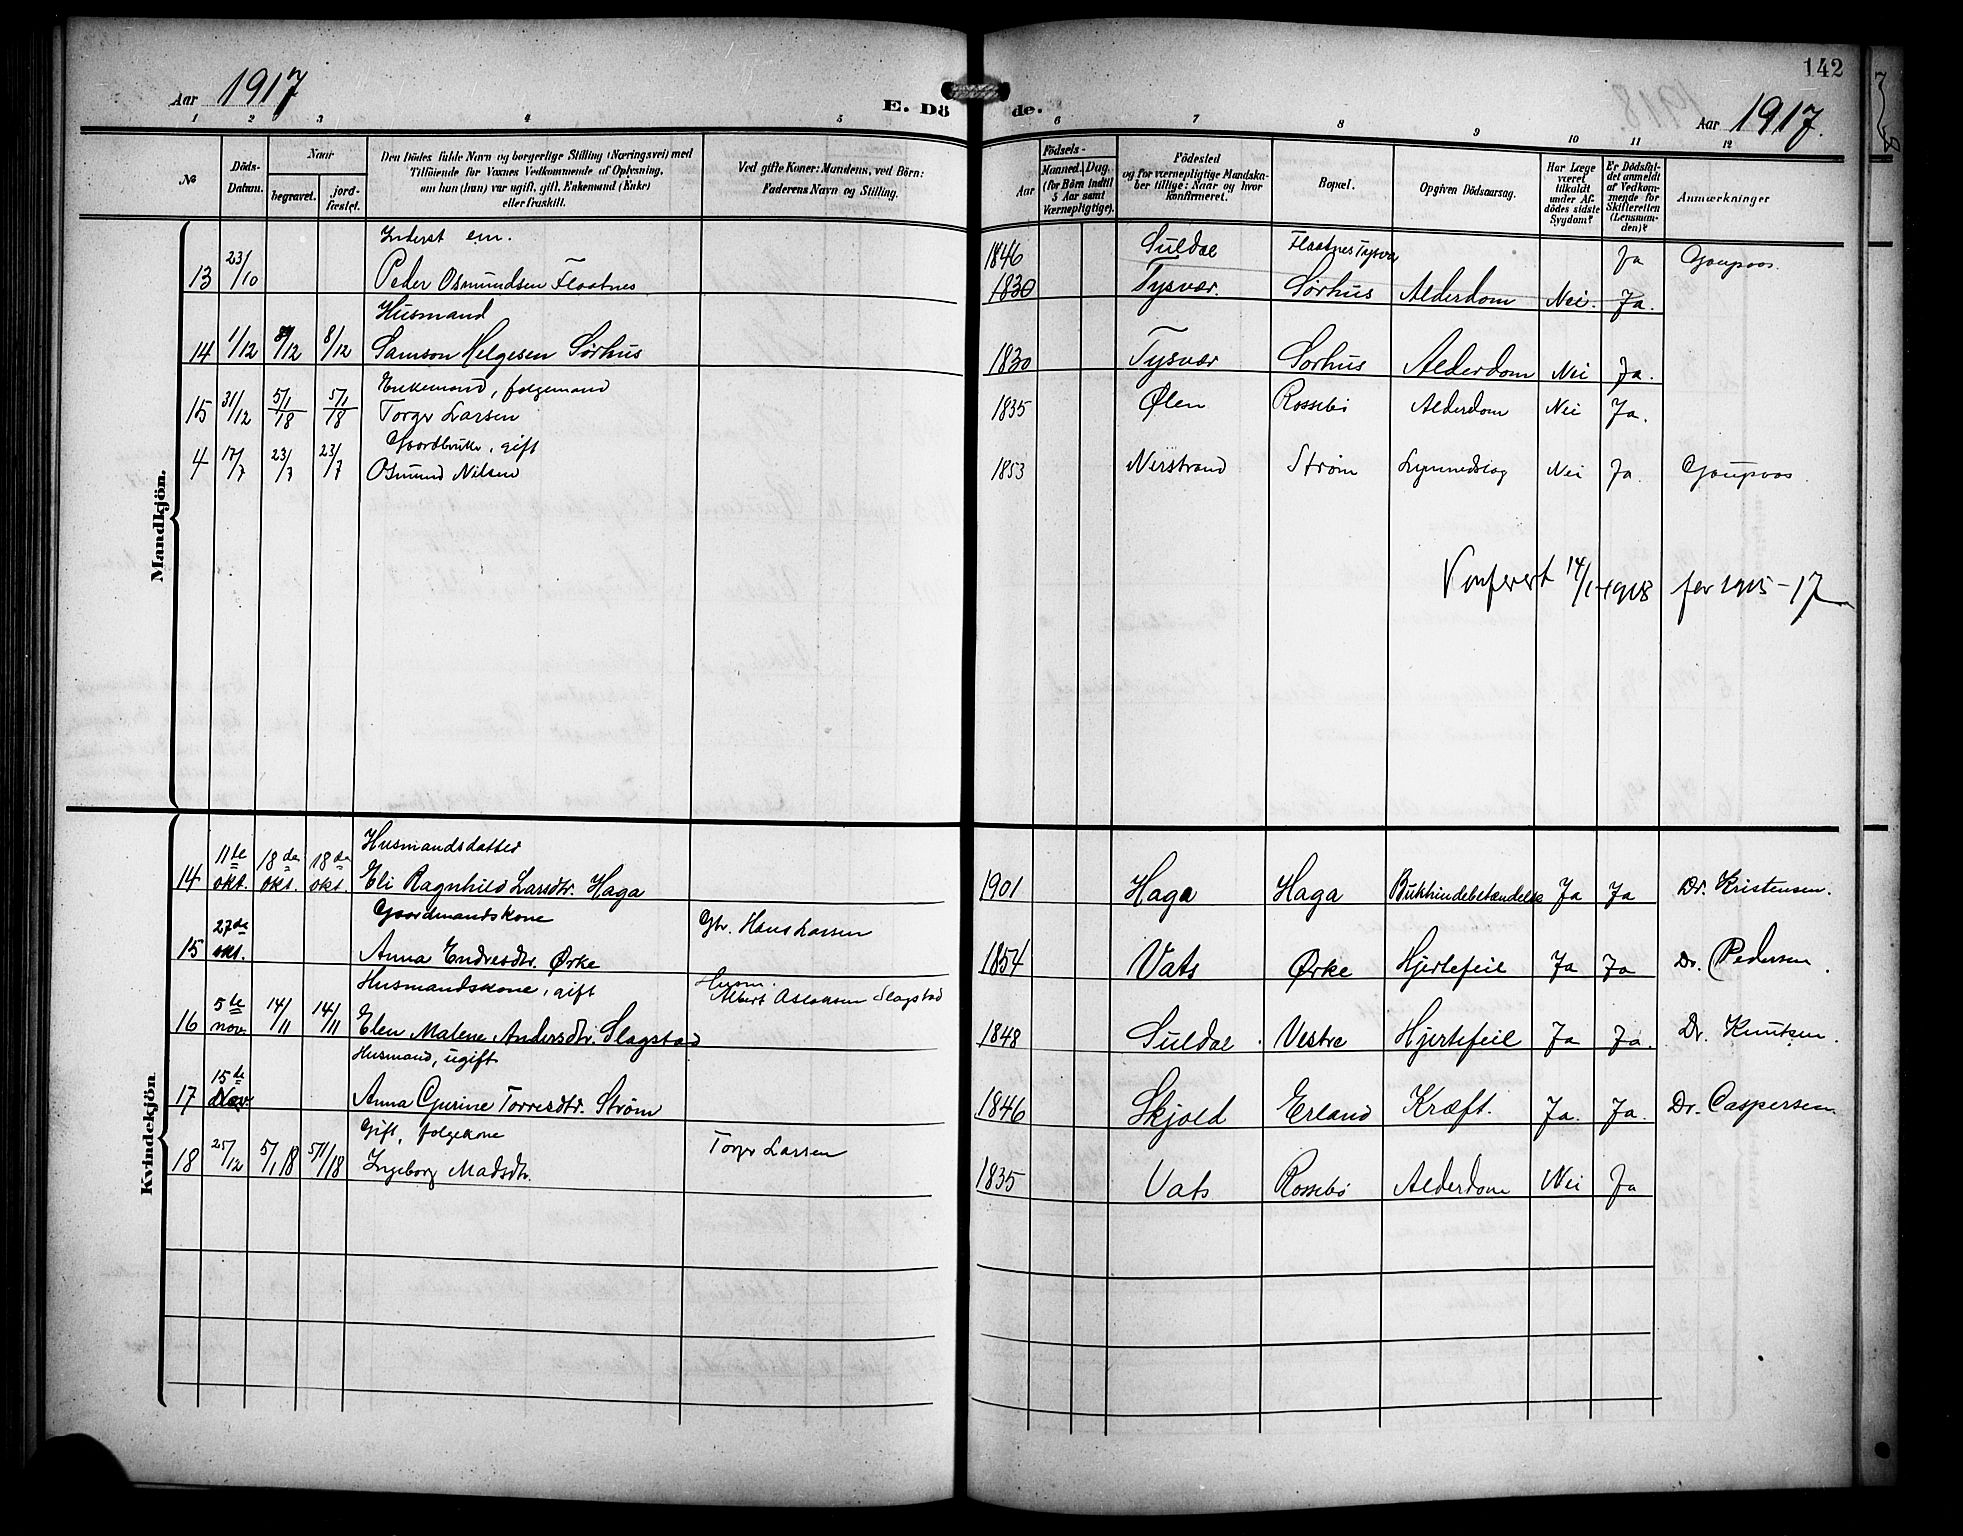 142
Aar 1917
E. Döde.
Aar 1917.
1 2 3 4 5 6 7 8 9 10 11 12
№
Döds-Datum.
Naar
begravet.
jord-fæstet.
Den Dödes fulde Navn og borgerlige Stilling (Næringsvei) med
Tilföiende for Voxnes Vedkommende af Oplysning,
om han (hun) var ugift, gift, Enkemand (Enke)
eller fraskilt.
Ved gifte Koner: Mandens, ved Börn:
Faderens Navn og Stilling.
Födsels-
Aar
Maaned. Dag.
(for Börn indtil
5 Aar samt
Værnepligtige).
Födested
og for værnepligtige Mandska-
ber tillige: Naar og hvor
konfirmeret.
Bopæl.
Opgiven Dödsaarsag.
Har Læge
været
tilkaldt
under Af-
dödes sidste
Sygdom?
Er Dödsfal-
det anmeldt
af Vedkom-
mende for
Skifteretten
(Lensman-
den)?
Anmærkninger
Mandkjön.
Inderst em.
13 23/10 Peder Osmundsen Flaatnes 1846 Suldal Flaatnes Tysvær Ja
1830 Tysvær. Sørhus Alderdom Nei. Ja.
Husmand
14 1/12 8/12 8/12 Samson Helgesen Sørhus 1830 Tysvær Sørhus Alderdom Nei Ja.
Enkemand, folgemand
15 31/12 5/1/18 5/1/18 Torger Larsen 1835 Ølen Rossebø Alderdom Nei Ja.
Gaardbruker, gift
4 17/7 23/7 23/7 Osmund Nilsen 1853 Nerstrand Strøm Nei Ja.
Konferert 14/1-1918 for 1915-17
Kvindekjön
Husmandsdatter
14 11te okt. 18de okt. 18de okt Eli Ragnhild Larsdtr. Haga 1901 Haga Haga Bukhindebetændelse Ja Ja Dr. Kristensen.
Gaardmandskone
15 27de okt. Anna Endresdtr. Ørke Gbr. Hans Larsen 1854 Vats Ørke Hjertefeil Ja Ja Dr. Pedersen.
Husmandskone, gift Husm.
16 5te nov. 14/11 14/11 Elen Malene Andersdtr. Slagstad Albert Aslaksen Slagstad 1848 Suldal. Vestre Hjertefeil Ja Ja. Dr. Knutsen.
Husmand, ugift
17 15de Nov. Anna Gurine Torresdtr. Strøm 1846 Skjold Erland Kræft. Ja. Ja. Dr. Caspersen
Gift, folgekone
18 25/12 5/1 18 5/1/18 Ingeborg Madsdtr. Torger Larsen 1835 Vats Rossebø Alderdom Nei Ja